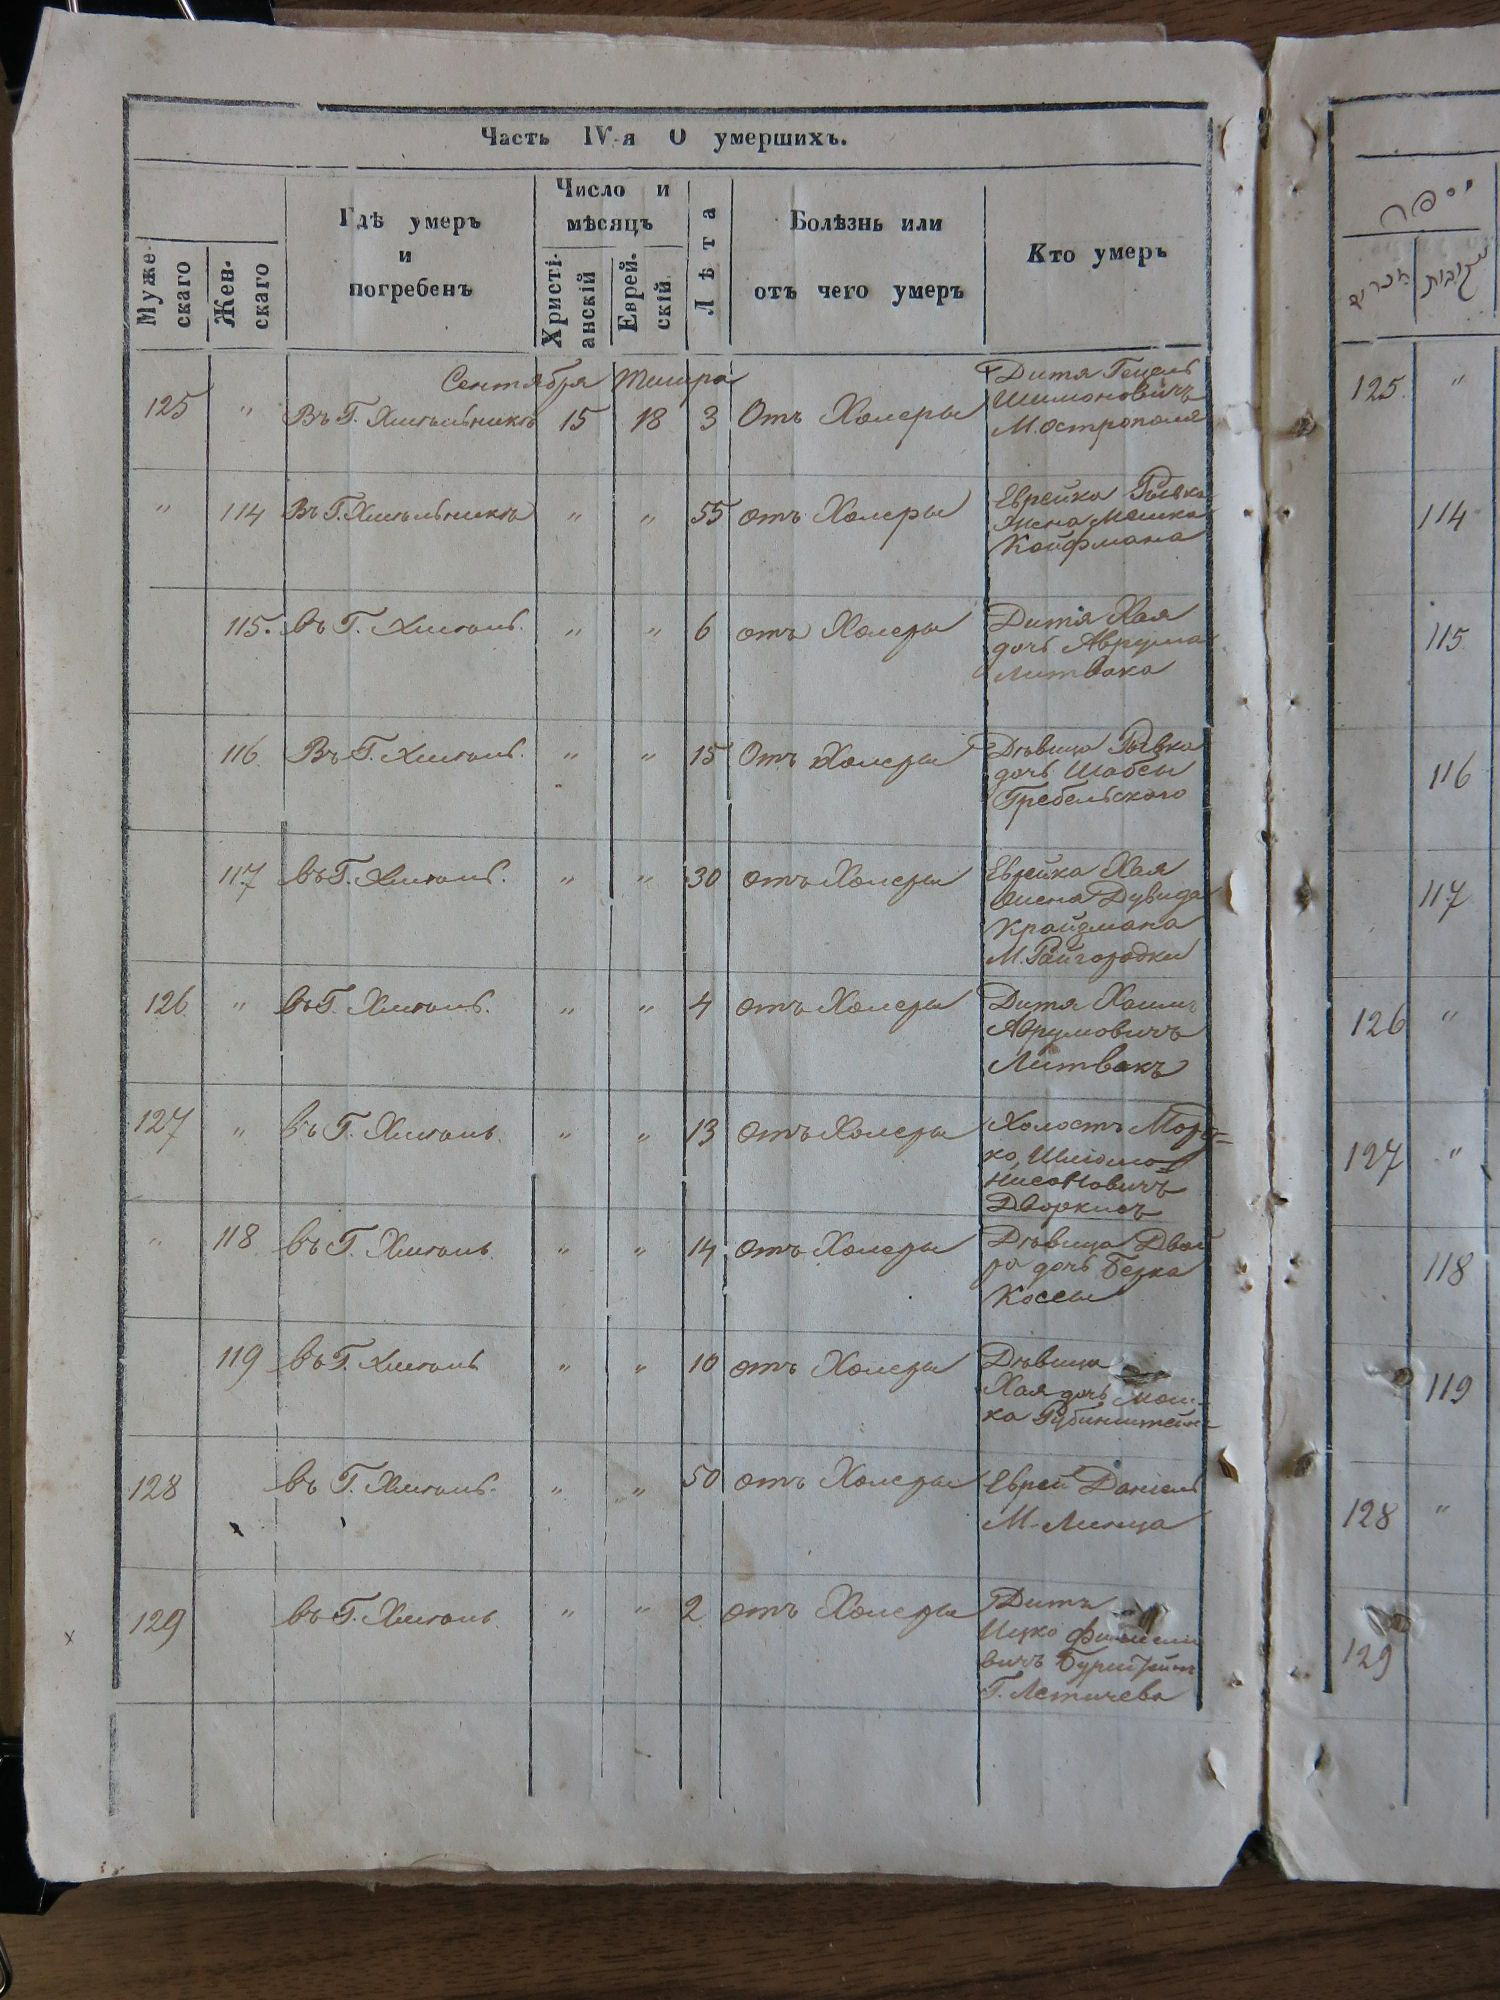 Часть IV-я О умершихъ.
Муже-скаго
Жен-скаго
Гдѣ умеръ
и
погребенъ
Число и
мѣсяцъ
Христі-анскій
Еврей-скій
Лѣта
Болѣзнь или
отъ чего умеръ
Кто умеръ
Сентября Тишра
125 " Въ Г. Хмѣльникѣ 15 18 3 Отъ Холеры Дитя Гецель
Шимоновичъ
М. Острополя
" 114 Въ Г. Хмѣльникѣ " " 55 отъ Холеры Еврейка Рывка
жена Мошка
Койфмана
115. въ Г. Хмѣль. " " 6 отъ Холеры Дитя Хая
дочь Аврума
Литвака
116 Въ Г. Хмѣль. " " 15 Отъ Холеры Дѣвица Рывка
дочь Шабсы
Гребельского
117 въ Г. Хмѣль. " " 30 отъ Холеры Еврейка Хая
жена Дувида
Крайзмана
М. Райгородки
126 " въ Г. Хмѣль. " " 4 отъ Холеры Дитя Хаимъ
Аврумовичъ
Литвакъ
127 " въ Г. Хмѣль. " " 13 отъ Холеры Холостъ Мордко
Шліома
Нисоновичъ
Дворкисъ
" 118 въ Г. Хмѣль. " " 14 отъ Холеры Дѣвица Двойра
дочь Берка
Коссы
119 въ Г. Хмѣль " " 10 отъ Холеры Дѣвица
Хая дочь Мошка
Рубинштейна
128 въ Г. Хмѣль. " " 50 отъ Холеры Еврей Даніель
М. Линца
129 въ Г. Хмѣль. " " 2 отъ Холеры Дитя
Ицко
Г. Летичева
125 "
114
115
116
117
126 "
127 "
118
119
128 "
129